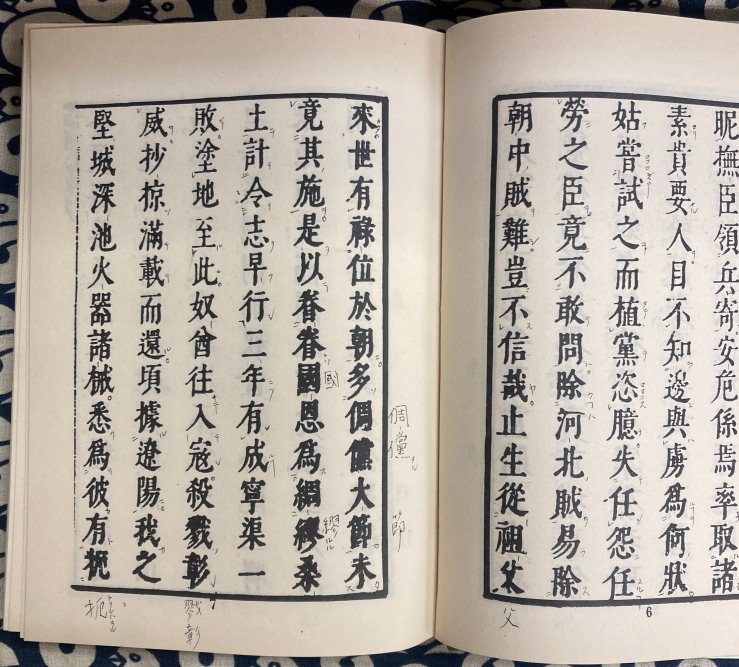 昵撫臣領兵寄安危係焉率取諸
素貴要人目不知邊與虜爲何狀
姑嘗試之而植黨恣臆失任怨任
勞之臣竟不敢問除河北賊易除
朝中賊難豈不信哉止生從祖父
父
6
來世有祿位於朝多倜儻大節未
竟其施是以眷眷國恩爲綢繆桑
土計令志早行三年有成寧渠一
敗塗地至此奴酋往入寇殺戮彰
威抄掠滿載而還頃據遼陽我之
堅城深池火器諸械悉爲彼有扼
倜儻
節
國
繆
戮
彰
扼
7